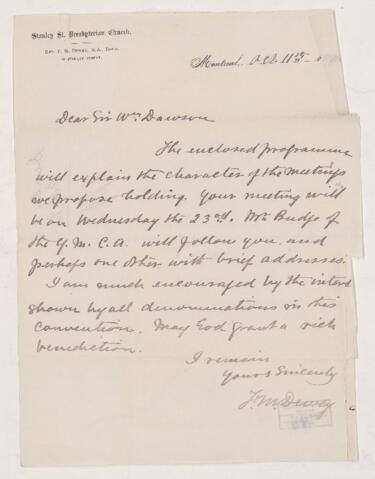 Stanley St. Presbyterian Church.
Rev. F. M. Dewey, M.A., Pastor,
Stanley Street.
Montreal, Oct 11th
Dear Sir Wm Dawson
The enclosed programme
will explain the character of the meetings
we propose holding. Your meeting will
be on Wednesday the 23rd. Mr Budge of
the Y. M. C. A. will follow you, and
perhaps one other with brief addresses.
I am much encouraged by the interest
shown by all denominations in this
convention. May God grant a rich
benediction.
I remain
Yours Sincerely
F. M. Dewey